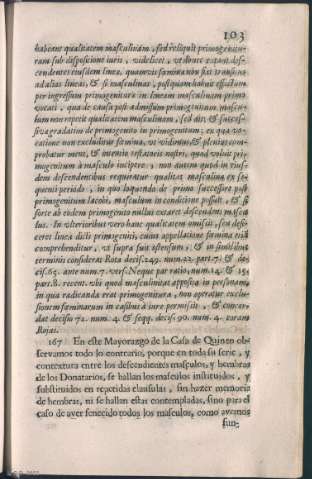 103
habeant qualitatem masculinam, sed reliquit primogenitu-
ram sub dispositione iuris, videlicet, ut dictæ expan. des-
cendentes eiusdem lineæ, quamvis fœmina non fiat transitus
ad alias lineas, & si masculinas, postquam habuit effectum
per ingressum primogenituræ in lineam masculinam primo
vocati, qua de causa post admissum primogenitum mascu-
lum non repetit qualitatem masculinam, sed dixit & succes-
sive gradatim de primogenito in primogenitum; ex qua vo-
catione non excluditur fœmina, ut vidimus, & plenius com-
probatur mens, & intentio testatoris nostri, quod voluit pri-
mogenitum à masculo incipere, non autem quod in eius-
dem descendentibus requiratur qualitas masculina ex se-
quenti periodo, in qua loquendo de primo successore post
primogenitum Iacobi, masculum in conditione possuit, & si
forte ab eodem primogenito nullus extaret descendens mascu-
lus. In ulterioribus vero hanc qualitatem omissit, sea desi-
ceret linea dicti primogeniti, cuius appellatione fœmina etiã
comprehenditur, ut supra fuit ostensum, & in similibus
terminis considerat Rota decis. 249. num. 22. part. 7. & de-
cis. 65. ante num. 7. vers. Neque par ratio, num. 14. & 15.
part. 8. recent. ubi quod masculinitas apposita in personam,
in qua radicanda erat primogenitura, non operatur exclu-
sionem fœminarum in casibus à iure permissis, & concor-
dat decisio 72. num. 4. & seqq. decis. 90. num. 4. coram
Rojas.
167 En este Mayorazgo de la Casa de Quinto ob-
servamos todo lo contrario, porque en toda su serie, y
contextura entre los descendientes masculos, y hembras
de los Donatarios, se hallan los masculos instituidos, y
substituidos en repetidas clausulas, sin hazer memoria
de hembras, ni se hallan estas contempladas, sino para el
caso de aver fenecido todos los masculos, como avemos
fun-